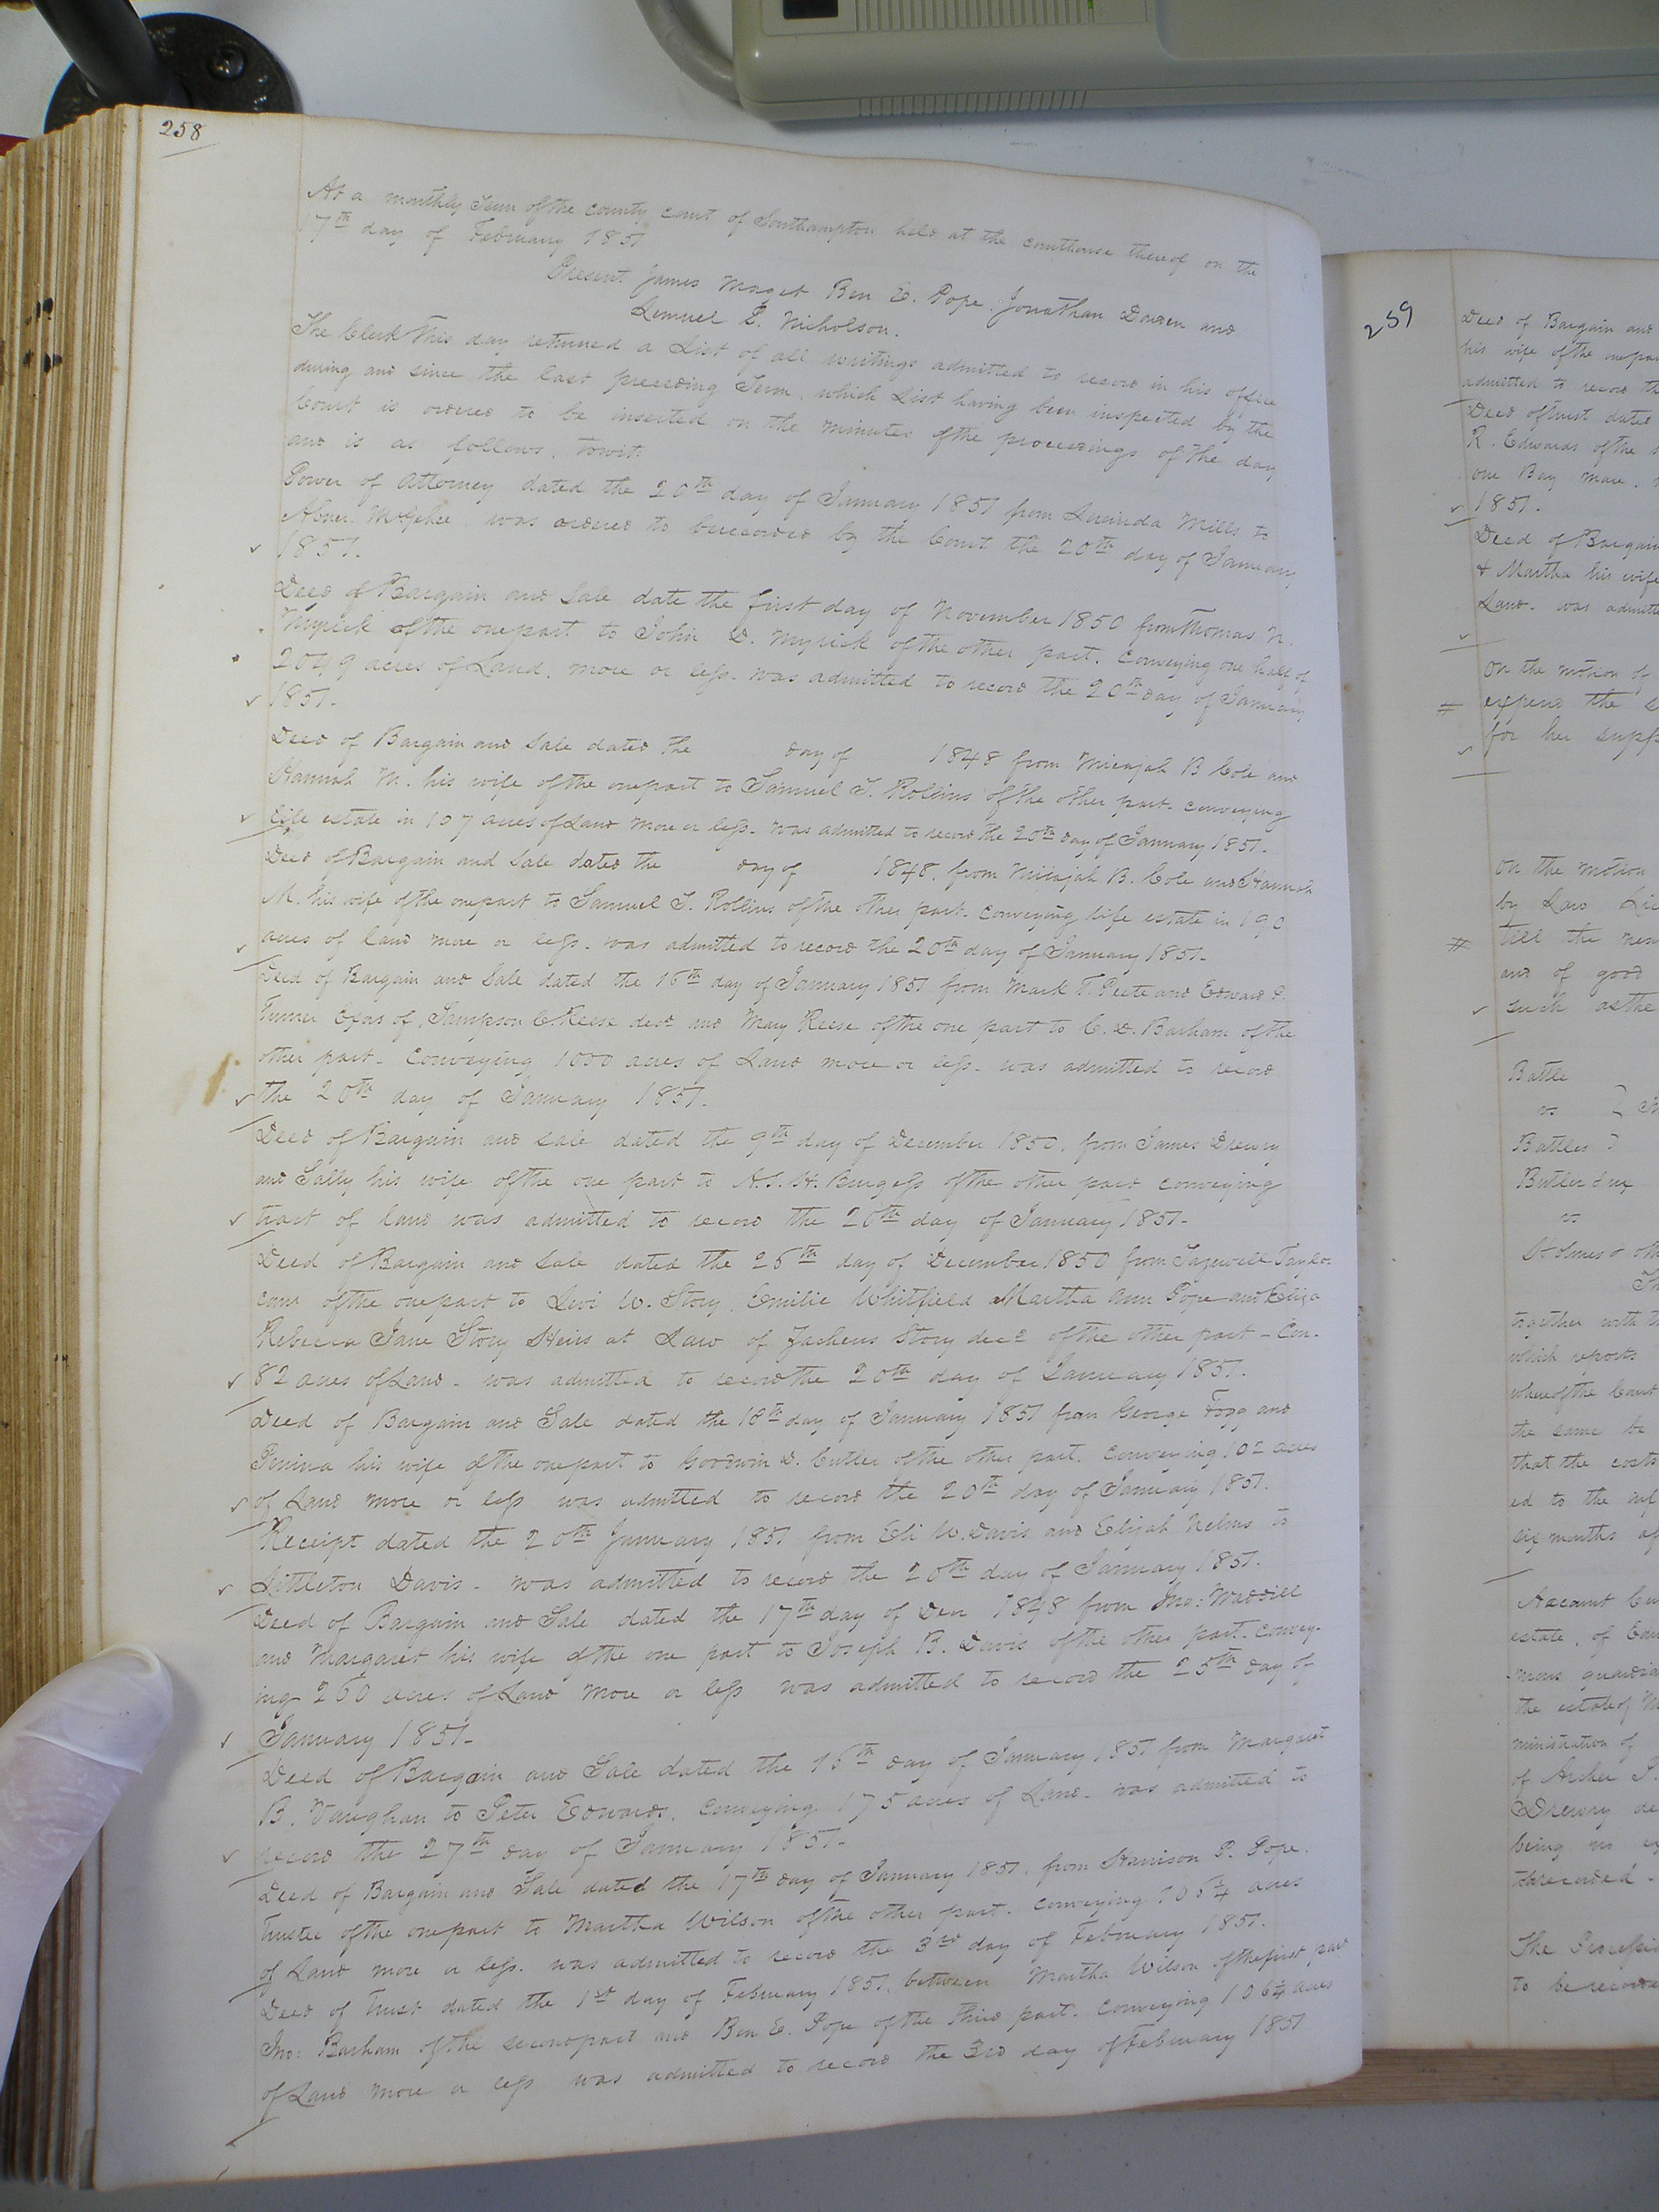 258
At a monthly Term of the county court of Southampton held at the courthouse thereof on the
17th day of February 1851
Present James Maget Ben E. Pope. Jonathan Darden and
Lemuel L. Nicholson.
The Clerk this day returned a List of all writings admitted to record in his office
during and since the last preceding Term. which List having been inspected by the
Court is ordered to be inserted on the minutes of the proceedings of the day
and is as follows. towit:
Power of Attorney dated the 20th day of January 1851 from Lucinda Mills to
Abner was ordered to be recorded by the Court the 20th day of January
1851.
Deed of Bargain and Sale date the first day of November 1850 from Thomas N.
Myrick of the one part to John D. Myrick of the other part. conveying one half of
2049 acres of Land. more or less. was admitted to record the 20th day of January
1851.
Deed of Bargain and Sale dated the day of 1848 from Micajah B Cole and
Hannah M. his wife of the one part to Samuel T. Rollins of the other part. conveying
life estate in 107 acres of Land more or less. was admitted to record the 20th day of January 1851.
Deed of Bargain and Sale dated the day of 1848. from Micajah B. Cole and Hannah
M. his wife of the one part to Samuel T. Rollins of the other part. conveying life estate in 190
acres of land more or less. was admitted to record the 20th day of January 1851.
Deed of Bargain and Sale dated the 16th day of January 1851 from Mark T. Peete and Edward P.
Turner Exors of Sampson C. Reese decd and Mary Reese of the one part to C. D. Barham of the
other part. Conveying 1000 acres of Land more or less. was admitted to record
the 20th day of January 1851.
Deed of Bargain and sale dated the 9th day of December 1850. from James Drewry
and Sally his wife of the one part to A.S.H. Burgess of the other part conveying
tract of land was admitted to record the 20th day of January 1851.
Deed of Bargain and Sale dated the 26th day of December 1850 from Tazewell Taylor
comr of the one part to Levi W. Story. Emilie Whitfield Martha Ann Pope and Eliza
Rebecca Jane Story Heirs at Law of Zacheus Story decd of the other part - Con.
82 acres of Land. was admitted to record the 20th day of January 1851.
Deed of Bargain and Sale dated the 18th day of January 1851 from George Fogg and
Penina his wife of the one part to Goodwin D. Cutler of the other part. Conveying 102 acres
of Land more or less was admitted to record the 20th day of January 1851.
Receipt dated the 20th January 1851 from Eli W. Davis and Elijah Nelms to
Littleton Davis - was admitted to record the 20th day of January 1851.
Deed of Bargain and Sale dated the 17th day of Decr 1848 from Jno: Waddill
and Margaret his wife of the one part to Joseph B. Davis of the other part. Convey-
ing 260 acres of Land more or less was admitted to record the 25th day of
January 1851.
Deed of Bargain and Sale dated the 16th day of January 1851 from Margaret
B. Vaughan to Peter Edwards. Conveying 175 acres of Land. was admitted to
record the 27th day of January 1851.
Deed of Bargain and Sale dated the 17th day of January 1851. from Harrison P. Pope.
Trustee of the one part to Martha Wilson of the other part. Conveying acres
of Land more or less. was admitted to record the 3rd day of February 1851.
Deed of Trust dated the 1st day of February 1851. between Martha Wilson of the first part
Jno: Barham of the second part and Ben E. Pope of the third part. Conveying 106¼ acres
of Land more or less was admitted to record the 3rd day of February 1851
259
Deed of Bargain and
his wife of the one part
admitted to record th
Deed of trust dated
R. Edwards of the
one Bay mare.
1851.
Deed of Bargain
& Martha his wife
Land. was admitte
On the motion of
expend the
for her supp
On the motion
by Law
till the
and of good
such as the
Battle
vs
Battles
Butler & ux
vs
Holmes & oth
together with th
which reports
whereof the Court
the same be
that the costs
ed to the
six months
Account
estate. of
guardia
the estate of
ministration of
of Archer
Drewry de
being no
The
to be recorde